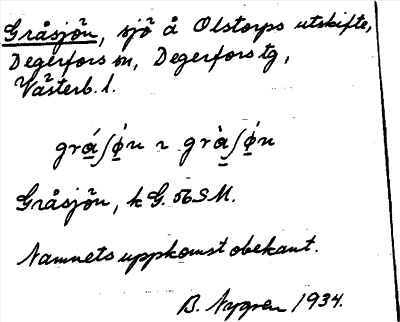 Gråsjön, sjö å Olstorps utskifte,
Degerfors sn, Degerfors tg,
Västerb. l.
grá̱ʃǿ̱n ~ grà̱ʃø̱̀n
Gråsjön, k G. 56 SM.
Namnets uppkomst obekant.
B. Nygren 1934.